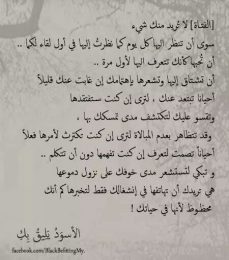 [الفتاة] لا تريد منك شيء
سوى أن تنظر اليها كل يوم كما نظرت إليها في أول لقاء لكما ..
أن تحبها كأنك تتعرف اليها لأول مرة ..
أن تشتاق إليها وتشعرها بإهتمامك إن غابت عنك قليلاً
أحيانا تبتعد عنك ، لترى إن كنت ستفتقدها
وتقسو عليك لتكتشف مدى تمسكك بها ،
وقد تتظاهر بعدم المبالاة لترى إن كنت تكترث لأمرها فعلاً
أحياناً تصمت لتعرف إن كنت تفهمها دون أن تتكلم ..
و تبكي لتستشعر مدى خوفك على نزول دموعها
هي تريدك أن تهاتفها في إنشغالك فقط لتخبرها كم أنك
محظوظ لأنها في حياتك !
الأسود يليق بك
facebook.com/BlackBefittingMy.